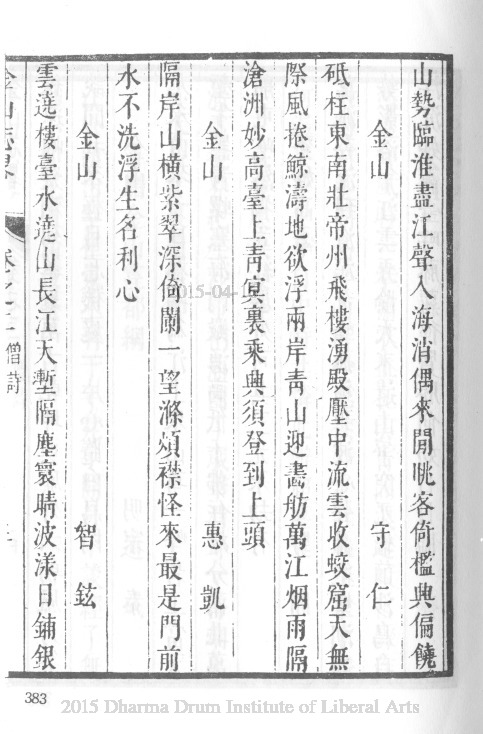 山勢臨淮盡江聲入海消偶來閒眺客倚檻興偏饒
金山 守仁
砥柱東南壯帝州飛樓湧殿壓中流雲收蛟窟天無
際風捲鯨濤地欲浮兩岸青山迎畫舫萬江烟雨隔
滄洲妙高臺上青冥裏乘興須登到上頭
金山 惠凱
隔岸山橫紫翠深倚闌一望滌煩襟怪來最是門前
水不洗浮生名利心
金山 智鉉
雲遶樓臺水遶山長江天塹隔塵寰晴波漾日鋪銀
金山志畧 卷之二 僧詩
383
2015-04-1
2015 Dharma Drum Institute of Liberal Arts